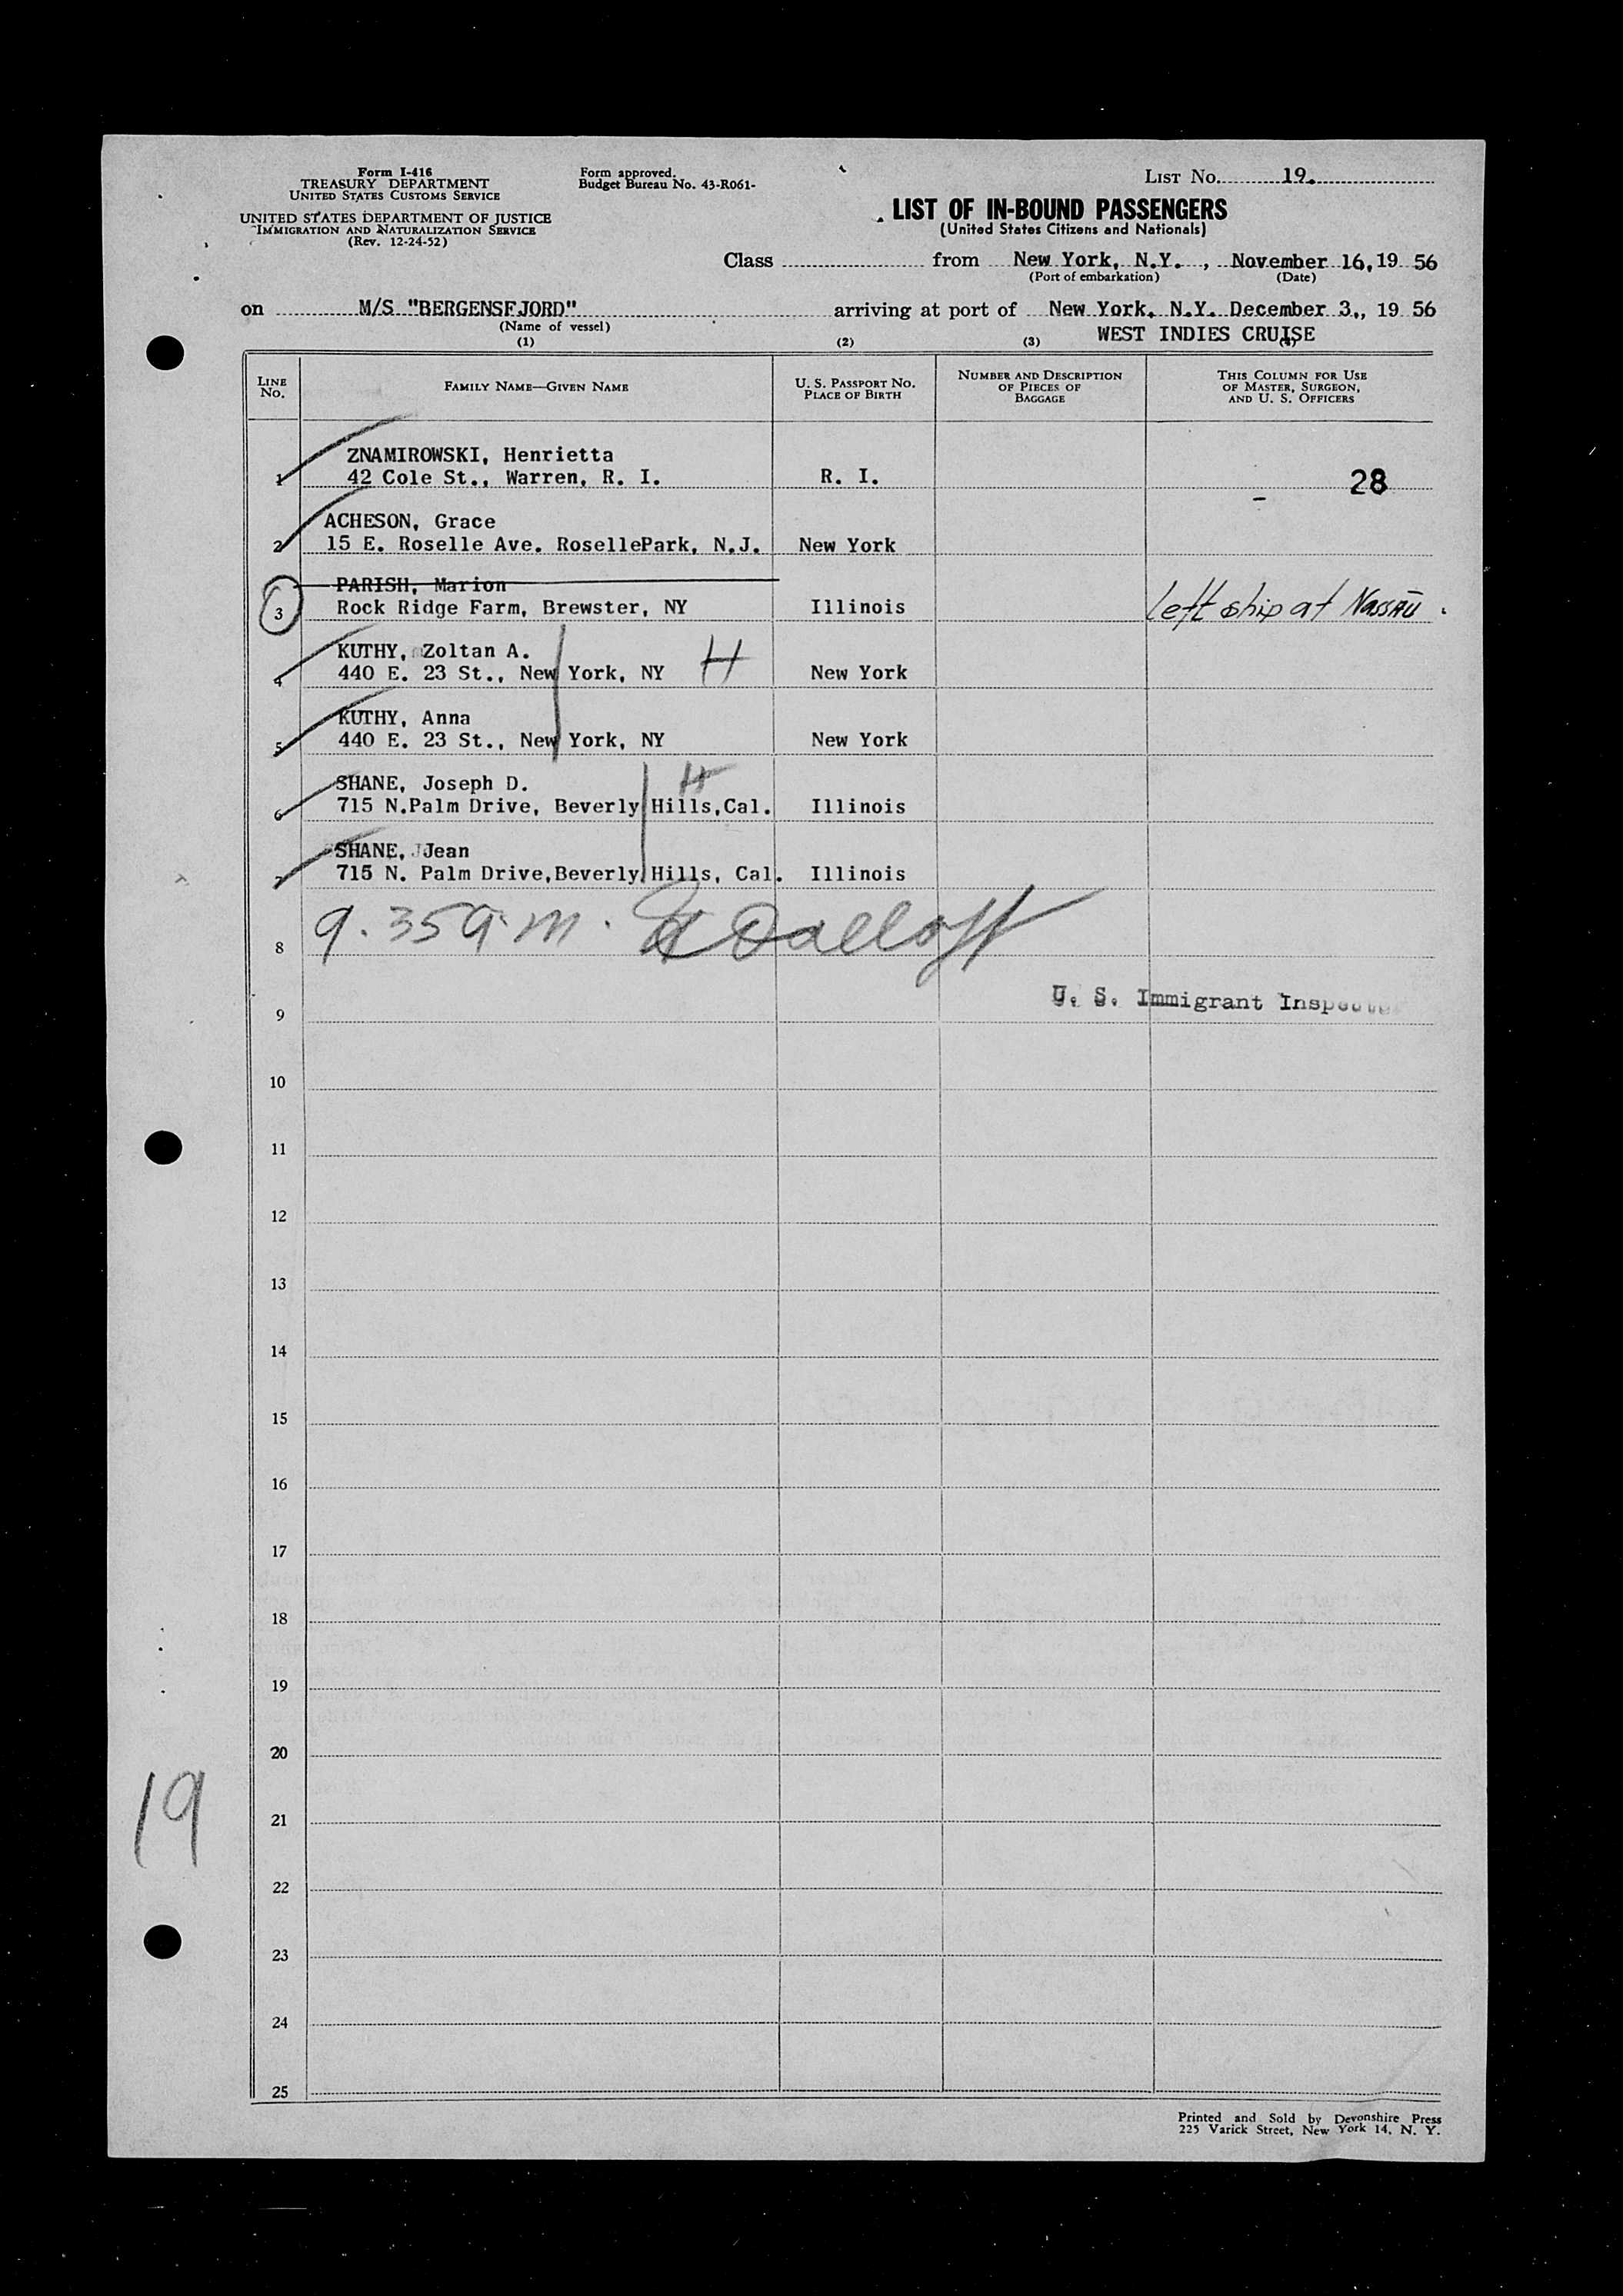 Form I-416
TREASURY DEPARTMENT
UNITED STATES CUSTOMS SERVICE
UNITED STATES DEPARTMENT OF JUSTICE
IMMIGRATION AND NATURALIZATION SERVICE
(Rev. 12-24-52)
Form approved.
Budget Bureau No. 43-R061-
LIST No. 19.
LIST OF IN-BOUND PASSENGERS
(United States Citizens and Nationals)
Class from New York, N.Y. , November 16, 19 56
(Port of embarkation) (Date)
on M/S "BERGENSFJORD" arriving at port of New York, N.Y. December 3., 19 56
(Name of vessel) WEST INDIES CRUISE
(1) (2) (3) (4)
LINE No. FAMILY NAME—GIVEN NAME U. S. PASSPORT NO. PLACE OF BIRTH NUMBER AND DESCRIPTION OF PIECES OF BAGGAGE THIS COLUMN FOR USE OF MASTER, SURGEON, AND U. S. OFFICERS
ZNAMIROWSKI, Henrietta
1 42 Cole St., Warren, R. I. R. I. 28
ACHESON, Grace
2 15 E. Roselle Ave. RosellePark, N.J. New York
PARISH, Marion
3 Rock Ridge Farm, Brewster, NY Illinois Left ship at Nassau.
KUTHY, Zoltan A.
4 440 E. 23 St., New York, NY H New York
KUTHY, Anna
5 440 E. 23 St., New York, NY New York
SHANE, Joseph D. H
6 715 N.Palm Drive, Beverly Hills,Cal. Illinois
SHANE, Jean
7 715 N. Palm Drive,Beverly Hills, Cal. Illinois
8 9.35 a.m.
U. S. Immigrant Inspector
9
10
11
12
13
14
15
16
17
18
19
20
21
19
22
23
24
25
Printed and Sold by Devonshire Press
225 Varick Street, New York 14, N. Y.